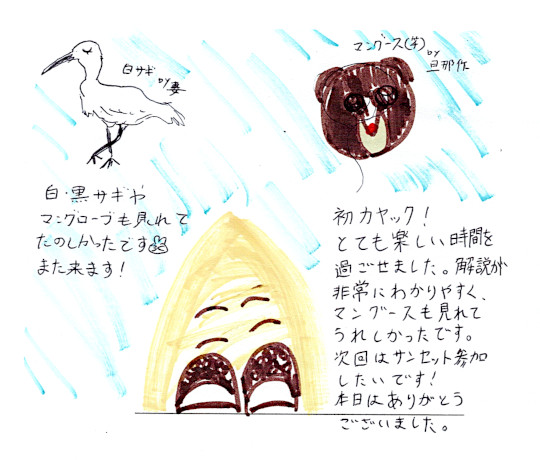 白サギ
by妻
マングース(笑)
by
旦那作
白・黒サギや
マングローブも見れて
たのしかったです
また来ます!
初カヤック!
とても楽しい時間を
過ごせました。解説が
非常にわかりやすく、
マングースも見れて
うれしかったです。
次回はサンセット参加
したいです!
本日はありがとう
ございました。